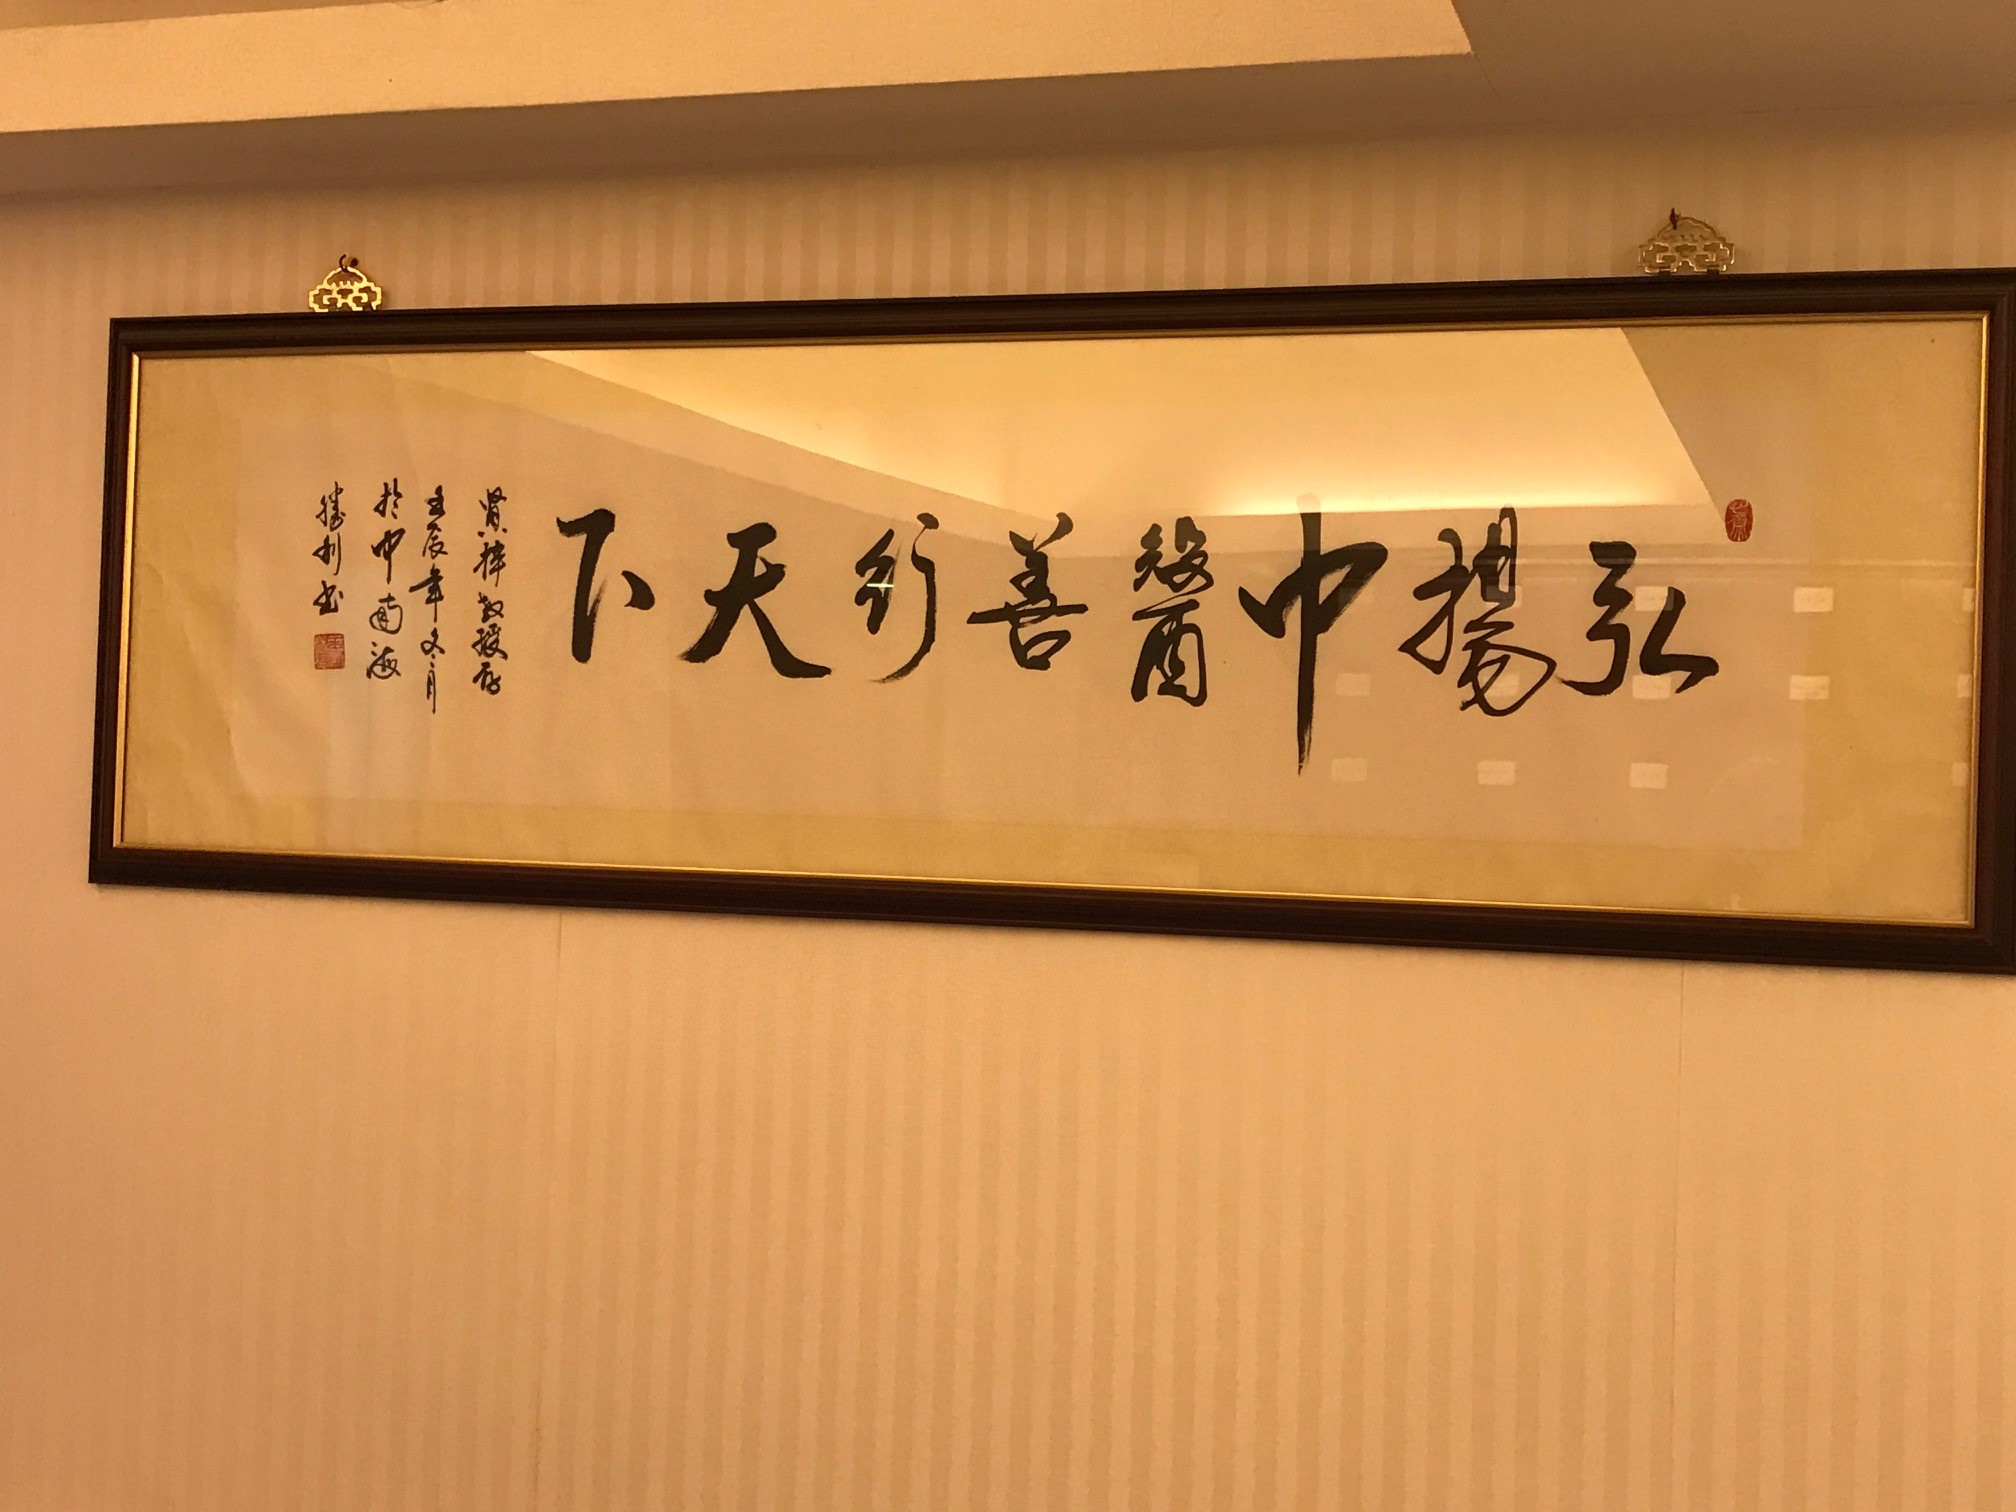 弘揚中醫善行天下
賢梓教授存
壬辰年冬二月
於中南海
勝利書